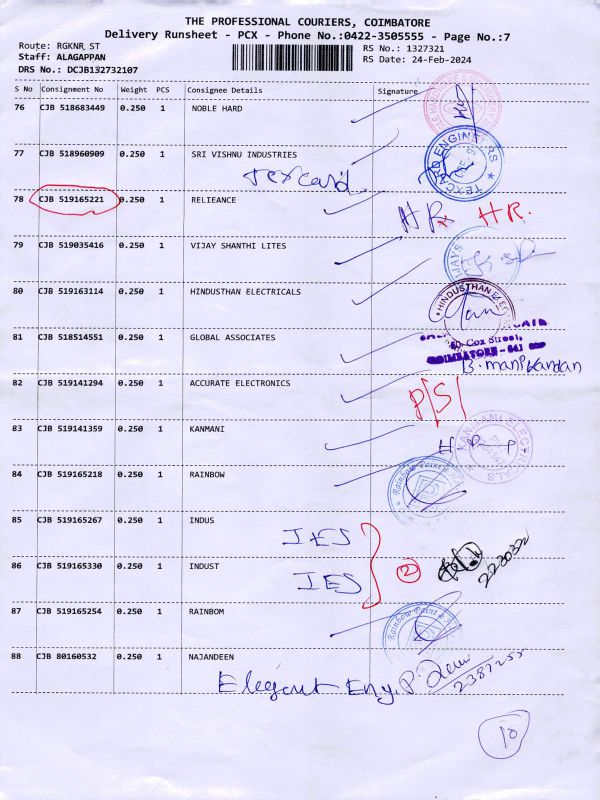 THE PROFESSIONAL COURIERS, COIMBATORE
Delivery Runsheet - PCX - Phone No.:0422-3505555 - Page No.:7
Route: RGKNR ST
RS No.: 1327321
Staff: ALAGAPPAN
RS Date: 24-Feb-2024
DRS No.: DCJB132732107
S No Consignment No Weight PCS Consignee Details Signature
76 CJB 518683449 0.250 1 NOBLE HARD
77 CJB 518960909 0.250 1 SRI VISHNU INDUSTRIES
Texcard
TEXCARD ENGINEERS
78 CJB 519165221 0.250 1 RELIEANCE
HR HR.
79 CJB 519035416 0.250 1 VIJAY SHANTHI LITES
80 CJB 519163114 0.250 1 HINDUSTHAN ELECTRICALS
HINDUSTHAN
81 CJB 518514551 0.250 1 GLOBAL ASSOCIATES
Cox Street,
COIMBATORE - 641
B. manikandan
82 CJB 519141294 0.250 1 ACCURATE ELECTRONICS
P/S/
83 CJB 519141359 0.250 1 KANMANI
84 CJB 519165218 0.250 1 RAINBOW
Rainbow Paint &
85 CJB 519165267 0.250 1 INDUS
IES
86 CJB 519165330 0.250 1 INDUST
IES
2
87 CJB 519165254 0.250 1 RAINBOM
Rainbow Paint &
88 CJB 80160532 0.250 1 NAJANDEEN
Elegant Eng.
2387255
10